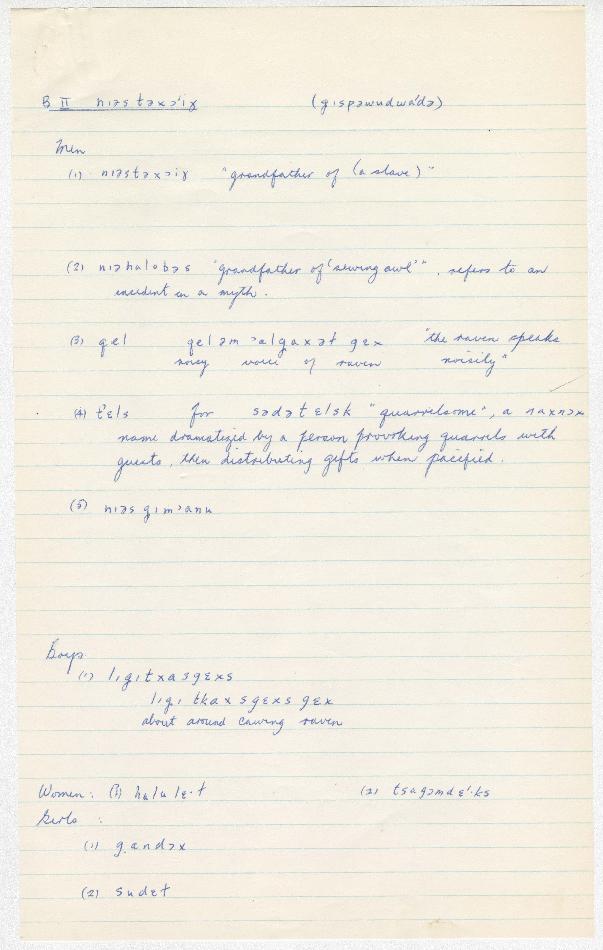 B II nıəs təxɔ'ıɣ (gıspəwudwá'də)
Men
(1) nıəstəxɔıɣ "grandfather of (a slave)"
(2) nıəhalobəs "grandfather of 'sewing awl'", refers to an
incident in a myth.
(3) qel qeləm ɔalgaxət gɛx "the raven speaks
noisy voice of raven noisily"
(4) t'ɛls for sədətɛlsk "quarrelsome", a naxnɔx
name dramatized by a person provoking quarrels with
guests, then distributing gifts when pacified.
(5) nıəs gımɔanu
Boys
(1) lıgıtxasgɛxs
lıgı tkax sgɛxs gɛx
about around cawing raven
Women: (1) halulɛ·t (2) tsagəmdɛ'·ks
Girls :
(1) g.andɔx
(2) sudɛt